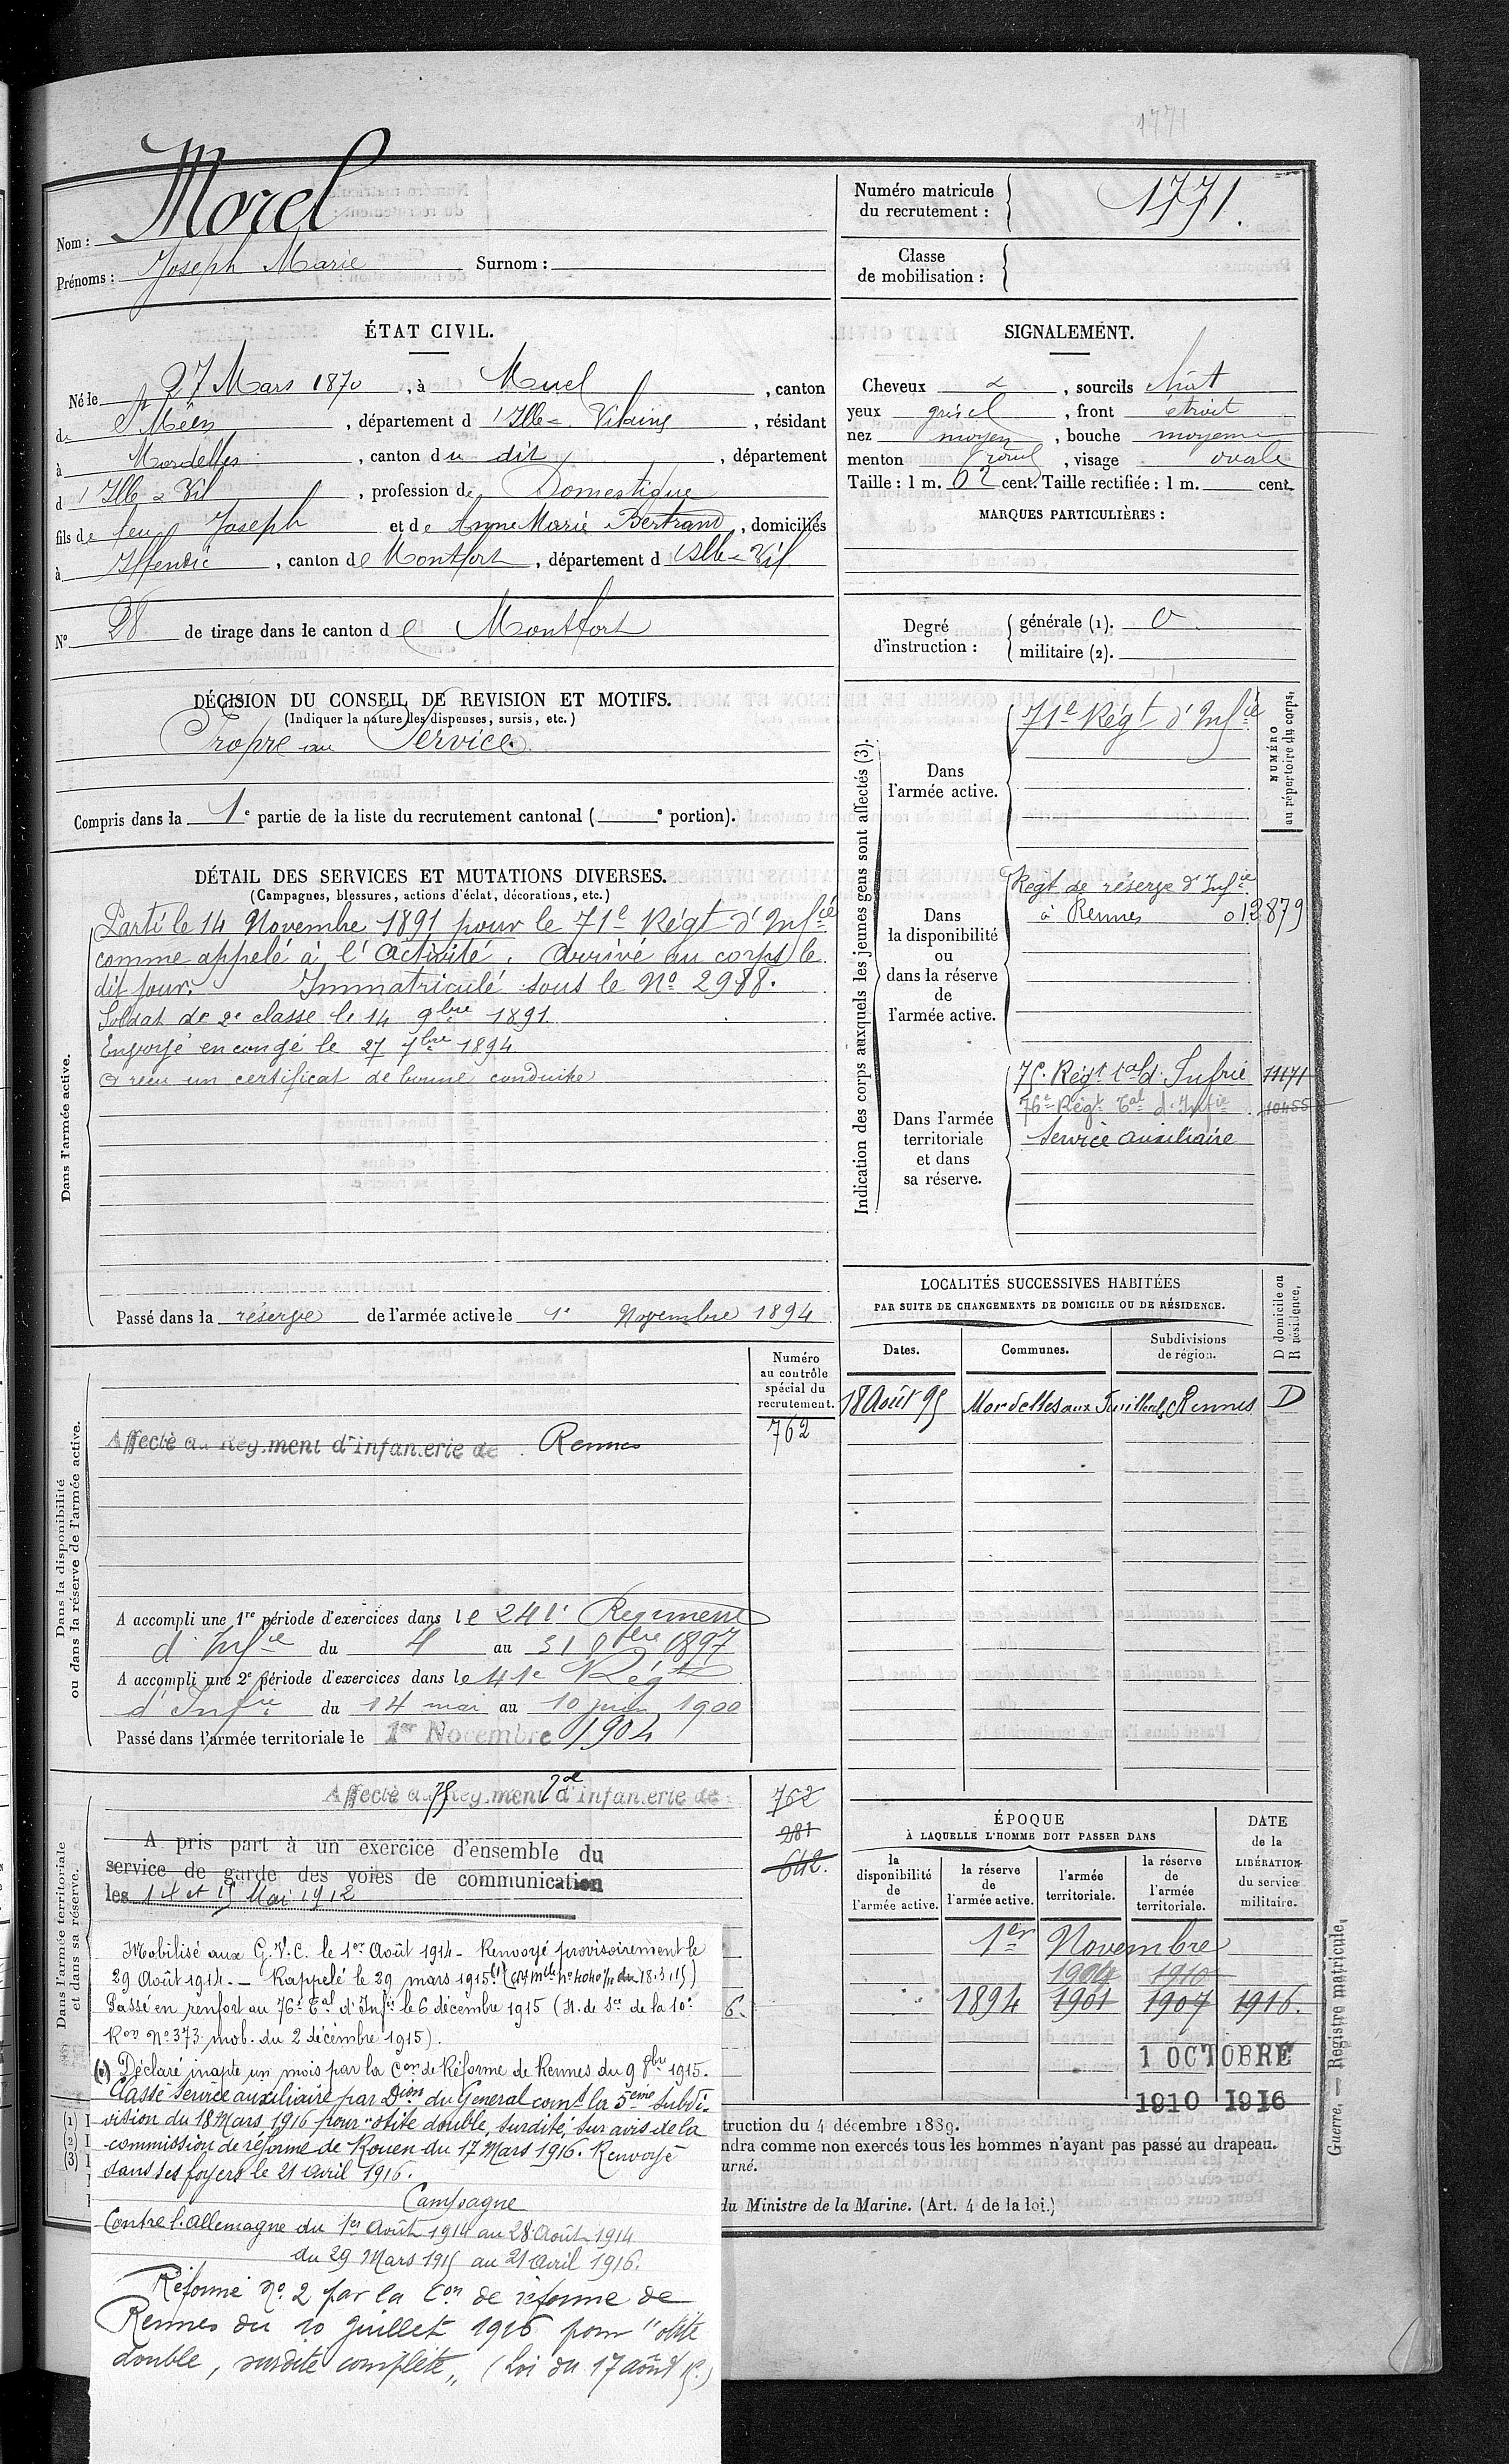 1771
Nom : Morel
Prénoms : Joseph Marie Surnom :
Numéro matricule du recrutement : 1771.
Classe de mobilisation :
ÉTAT CIVIL.
Né le 27 Mars 1870, à Muel, canton
de St Méen, département d'Ille-&-Vilaine, résidant
à Mordelles, canton du dit, département
d'Ille & Vil, profession de Domestique
fils de feu Joseph et de Anne Marie Bertrand, domiciliés
à Iffendic, canton de Montfort, département d'Ille-&-Vil
N° 28 de tirage dans le canton de Montfort
SIGNALEMENT.
Cheveux &, sourcils chât
yeux gris, front étroit
nez moyen, bouche moyenne
menton rond, visage ovale
Taille : 1 m. 62 cent. Taille rectifiée : 1 m. cent.
MARQUES PARTICULIÈRES :
Degré d'instruction :
générale (1). 0
militaire (2).
DÉCISION DU CONSEIL DE REVISION ET MOTIFS.
(Indiquer la nature des dispenses, sursis, etc.)
Propre au Service.
Compris dans la 1e partie de la liste du recrutement cantonal ( e portion).
DÉTAIL DES SERVICES ET MUTATIONS DIVERSES.
(Campagnes, blessures, actions d'éclat, décorations, etc.)
Dans l'armée active.
Parti le 14 Novembre 1891 pour le 71e Régt d'Infie
comme appelé à l'activité. Arrivé au corps le
dit jour. Immatriculé sous le No 2988.
Soldat de 2e classe le 14 9bre 1891
Envoyé en congé le 27 7bre 1894
a reçu un certificat de bonne conduite
Passé dans la réserve de l'armée active le 1er Novembre 1894
Indication des corps auxquels les jeunes gens sont affectés (3).
NUMÉRO
au répertoire du corps.
Dans l'armée active.
71e Régt d'Infie
Dans la disponibilité ou dans la réserve de l'armée active.
Régt de réserve d'Infie
à Rennes 012879
Dans l'armée territoriale et dans sa réserve.
75e Régt tal d'Infrie 11171
76e Régt Tal d'Infie 10455
Service auxiliaire
LOCALITÉS SUCCESSIVES HABITÉES
PAR SUITE DE CHANGEMENTS DE DOMICILE OU DE RÉSIDENCE.
Dates. Communes. Subdivisions de région.
D domicile ou
R résidence.
18 Août 95 Mordelles aux Rennes D
Dans la disponibilité
ou dans la réserve de l'armée active.
Numéro
au contrôle
spécial du
recrutement.
762
Affecté au Régiment d'infanterie de Rennes
A accompli une 1re période d'exercices dans le 241e Régiment
d'Infie du 4 au 31 8bre 1897
A accompli une 2e période d'exercices dans le 41e Régt
d'Infie du 14 mai au 10 juin 1900
Passé dans l'armée territoriale le 1er Novembre 1904
Dans l'armée territoriale
et dans sa réserve.
Affecté au 75 Régiment Tal d'infanterie de
762
281
642.
A pris part à un exercice d'ensemble du
service de garde des voies de communication
les 14 et 15 Mai 1912
Mobilisé aux G.V.C. le 1er Août 1914 - Renvoyé provisoirement le
29 Août 1914. - Rappelé le 29 mars 1915 (1)
Passé en renfort au 76e Tal d'Infie le 6 décembre 1915 (N. de Sce de la 10e
Ron No 373 mob. du 2 décembre 1915).
6.
(1) Déclaré inapte un mois par la Con de Réforme de Rennes du 9 8bre 1915.
Classé service auxiliaire par Dion du Général comt la 5eme subdi-
vision du 18 Mars 1916 pour "otite double, surdité", sur avis de la
commission de réforme de Rouen du 17 Mars 1916. Renvoyé
dans ses foyers le 21 Avril 1916.
Campagne
Contre l'Allemagne du 1er Août 1914 au 28 Août 1914
du 29 Mars 1915 au 21 Avril 1916.
Réformé No 2 par la Con de réforme de
Rennes du 10 Juillet 1916 pour "otite
double, surdité complète„ (Loi du 17 août 15)
ÉPOQUE
À LAQUELLE L'HOMME DOIT PASSER DANS
la disponibilité de l'armée active.
la réserve de l'armée active.
l'armée territoriale.
la réserve de l'armée territoriale.
DATE de la LIBÉRATION du service militaire.
1er Novembre
1904 1910
1894 1901 1907 1916.
1 OCTOBRE
1910 1916
(1)
(2)
(3)
truction du 4 décembre 1889.
ndra comme non exercés tous les hommes n'ayant pas passé au drapeau.
urné.
du Ministre de la Marine. (Art. 4 de la loi.)
Guerre. — Registre matricule.